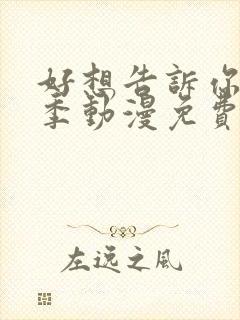 好想告訴你
季動漫免費
左逸之風